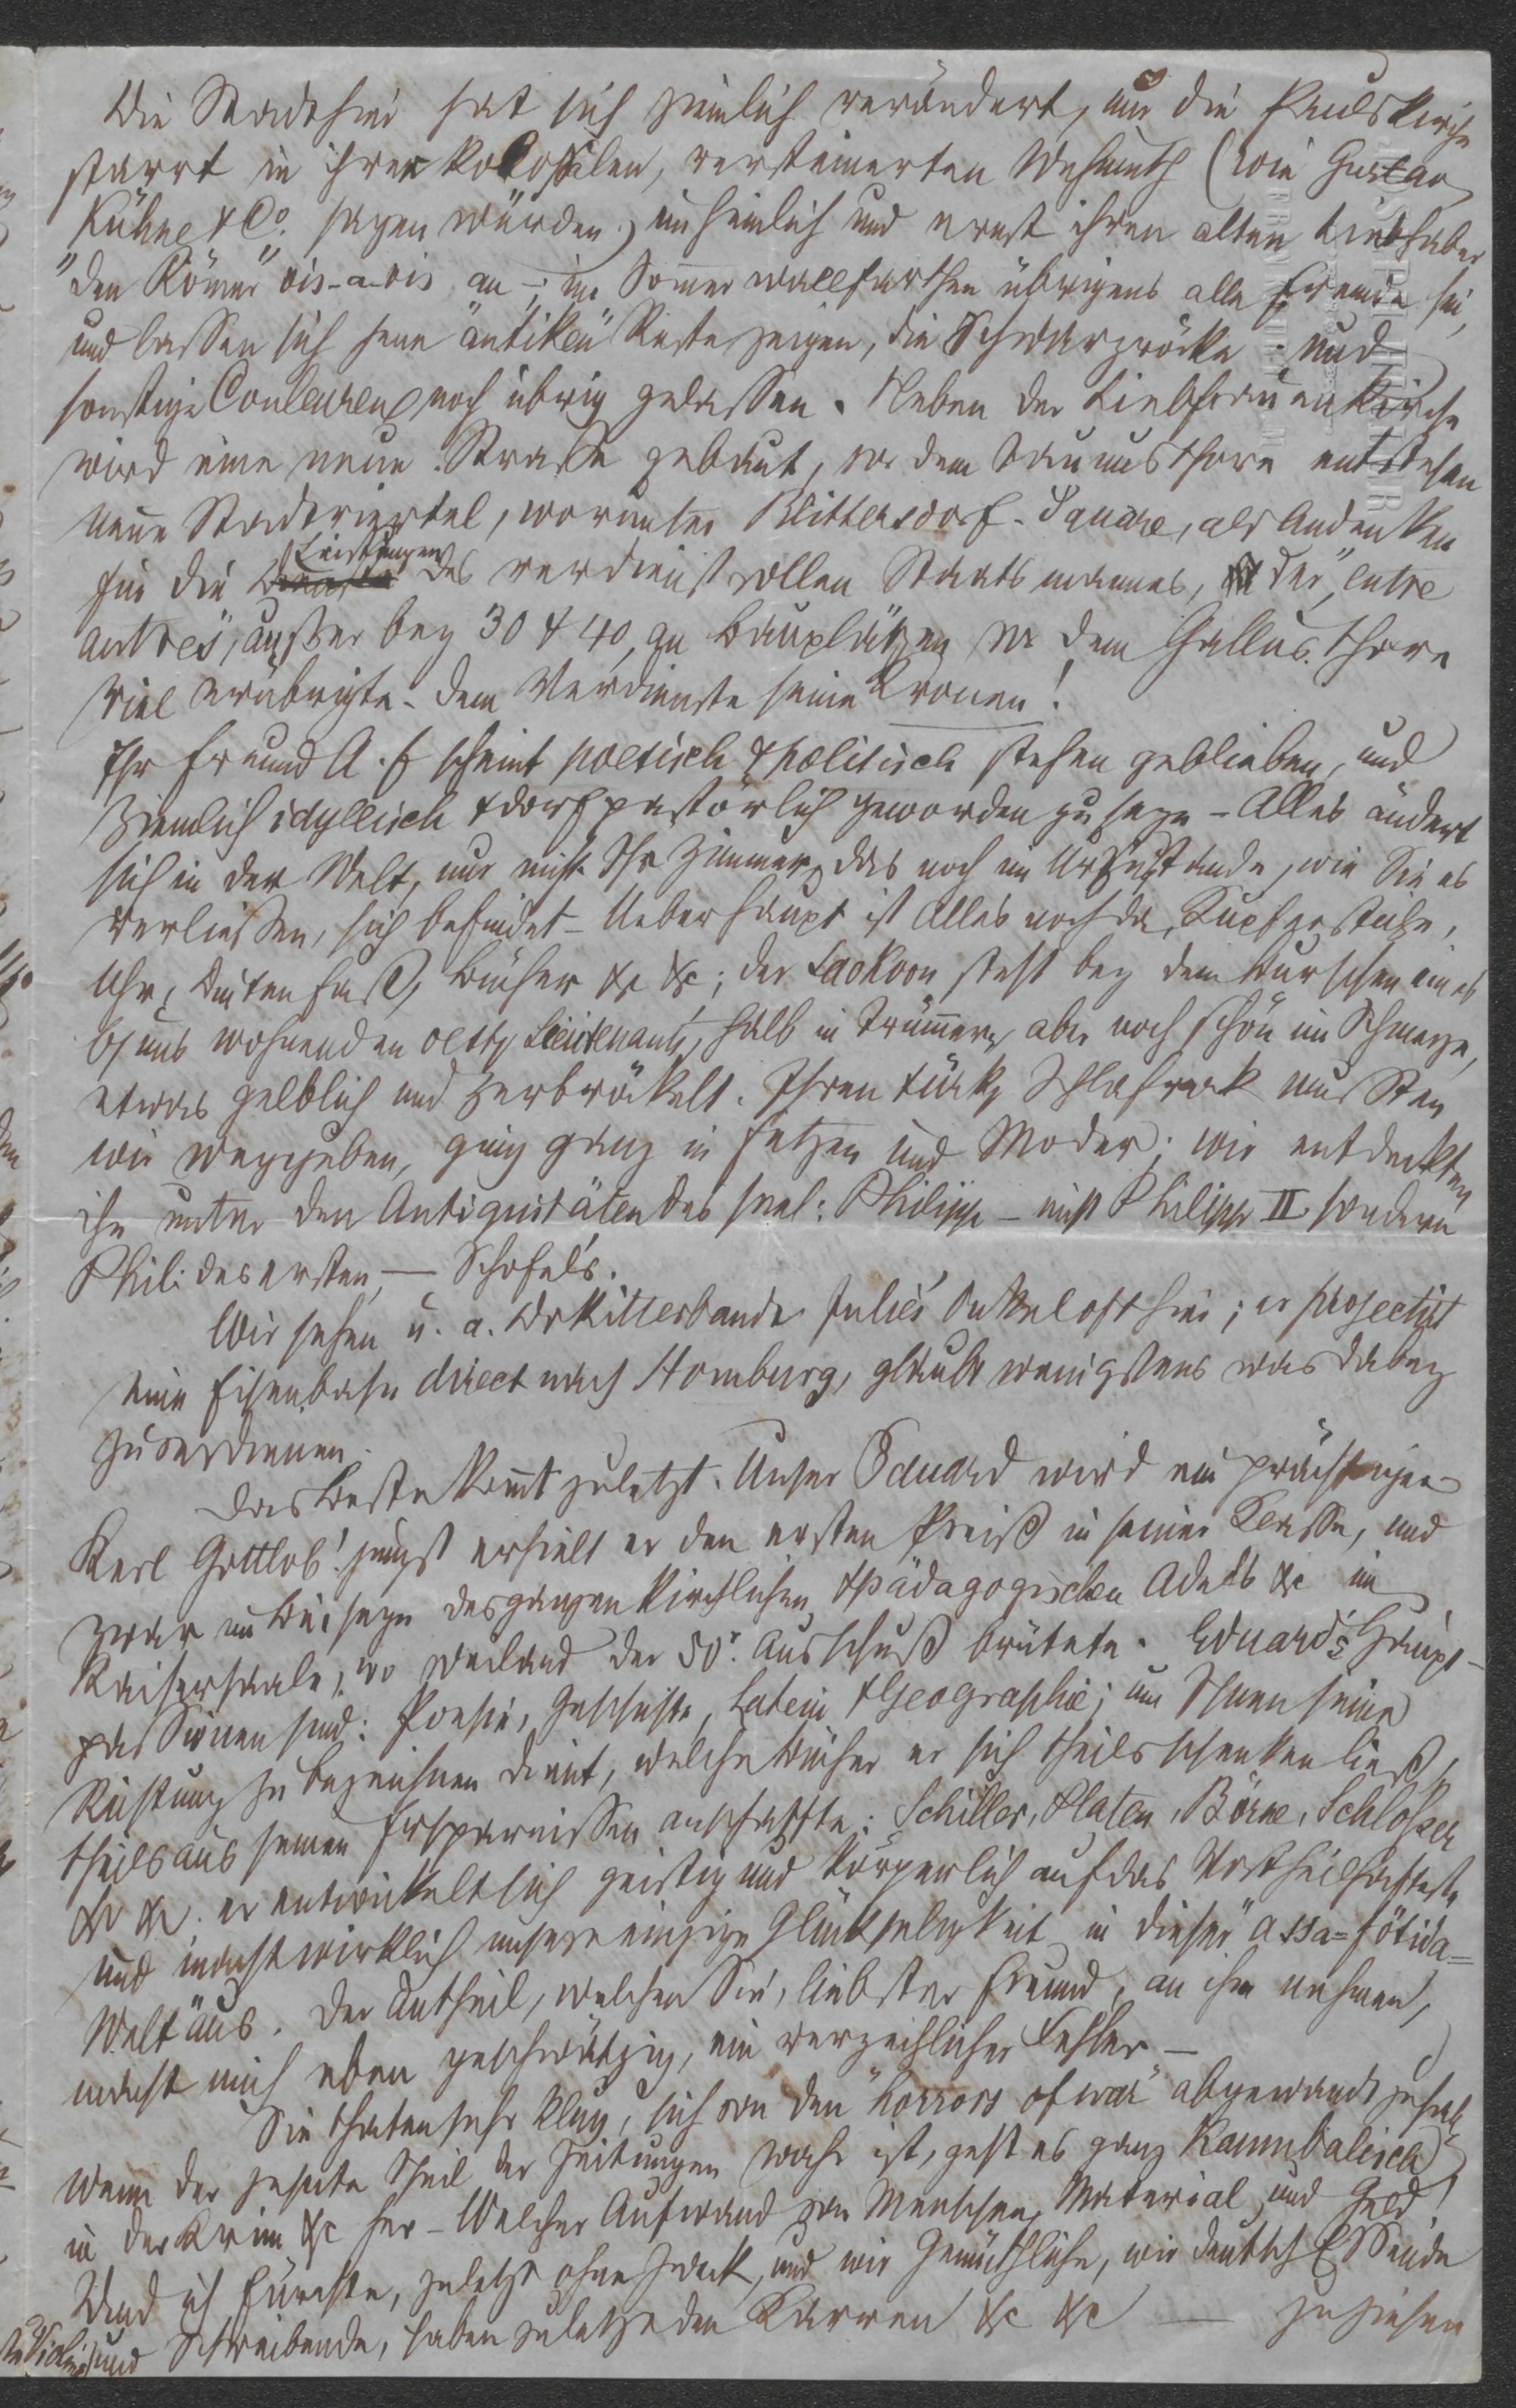 Die Stadt hier hat sich ziemlich verändert, nur die Paulskirche
starrt in ihrer kolossalen, versteinerten Wehmuth (wie Gustav
Kühne & Co. sagen würden) unheimlich und ernst ihren alten Liebhaber
"den Römer" vis-a-vis an –; im Sommer wallfarthen übrigens alle Fremde hin,
und lassen sich jene "antiken" Reste zeigen, die Schwarzröcke und
sonstige Couleuren noch übrig gelassen. Neben der Liebfrauenkirche
wird eine neue Straße gebaut, vor dem Taunusthore entstehen
neue Stadtviertel, worunter Blittersdorf-Square, als Andenken
für die Leistungen des verdienstvollen Staatsmannes, der "entre
autres", außer bey 30 & 40, an Bauplätzen vor dem Gallusthore
viel erübrigte. Dem Verdienste seine Kronen!
Ihr Freund A. f scheint poetisch & politisch stehen geblieben, und
ziemlich idyllisch & dorfpastörlich geworden zu seyn – Alles ändert
sich in der Welt, nur nicht Ihr Zimmer, das noch im Urzustande, wie Sie es
verließen, sich befindet – Ueberhaupt ist Alles noch da, Kupferstiche,
Uhr, Dintenfaß, Bücher &c &c; der Laokoon steht bey dem Burschen eines
bey uns wohnenden oestr Lieutenants, halb in Trümmern, aber noch schön im Schmerze,
etwas gelblich und zerbröckelt. Ihren türk Schlafrock mußten
wir weggeben, ging ganz in Fetzen und Moder; wir entdeckten
ihn unter den Antiquitäten des seel: Philipp – nicht Philipp II sondern
Phil: des ersten, — Schofels.
Wir sehen u. a. Julies Onkel oft hier; er projectirt
eine Eisenbahn direct nach Homburg, glaubt wenigstens was dabey
zu verdienen.
Das Beste kommt zuletzt. Unser Eduard wird ein prächtiger
Kerl Gottlob! jüngst erhielt er den ersten Preiß in seiner Classe, und
zwar im Beiseyn des ganzen kirchlichen & pädagogischen Adels &c im
Kaisersaale, wo weiland der 50r Ausschuß brütete. Eduard's Haupt-
passionen sind: Poesie, Geschichte, Latein & Geographie; um Ihnen seine
Richtung zu bezeichnen dient, welche Bücher er sich theils schenken ließ,
theils aus seinen Ersparnissen anschaffte: Schiller, Platen, Börne, Schlosser
&c &c. er entwickelt sich geistig und körperlich auf das Vortheilhafteste
und macht wirklich unsere einzige Glückseligkeit in dieser "assa-fötida-
Welt" aus. Der Antheil, welchen Sie, liebster Freund, an ihm nehmen,
macht mich eben geschwätzig, ein verzeihlicher Fehler –
Sie thaten sehr klug, sich von den "horrors of war" abgewandt zu hab
wenn der zehnte Theil der Zeitungen wahr ist, geht es ganz kannibalisch
in der Krim &c her – Welcher Aufwand von Menschen, Material und Geld!
Und ich fürchte, zuletzt ohne Zweck, und wir Gemüthliche, wir deutsch Essende
und Schreibende, haben zuletzt den Karren &c &c — zu ziehen